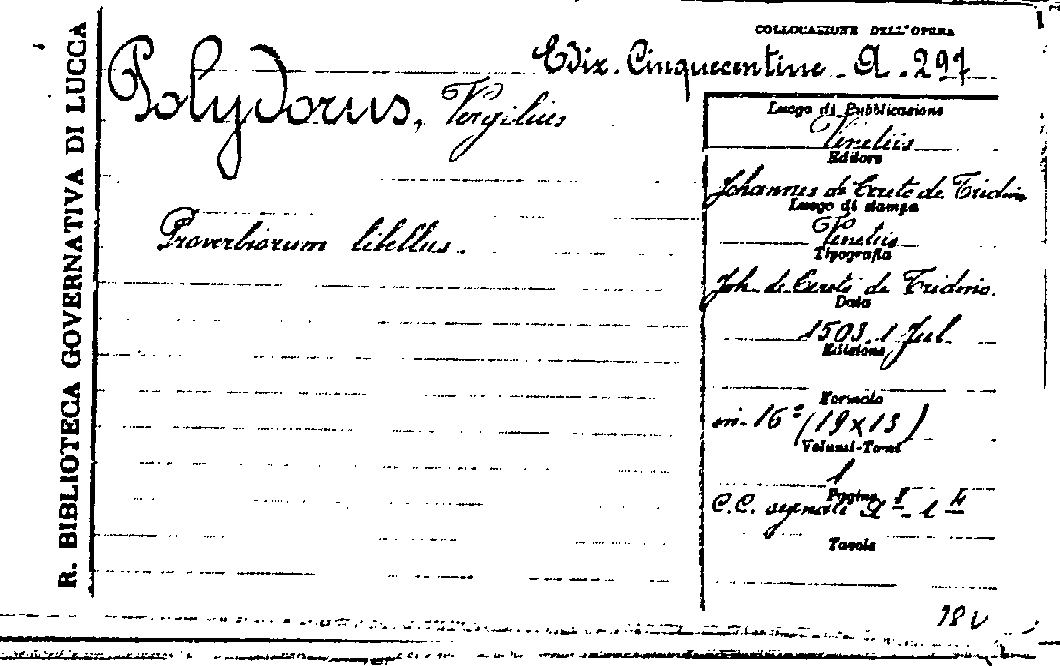 R. BIBLIOTECA GOVERNATIVA DI LUCCA
COLLOCAZIONE DELL'OPERA
Ediz. Cinquecentine - A. 297
Polydorus, Vergilius
Proverbiorum libellus.
Luogo di Pubblicazione
Venetiis
Editore
Johannes de Cereto de Tridino
Luogo di stampa
Venetiis
Tipografia
Joh. de Cereto de Tridino.
Data
1503. 1 Jul.
Edizione
Formato
in-16° (19x13)
Volumi-Tomi
1
Pagine
C.C. segnate
Tavole